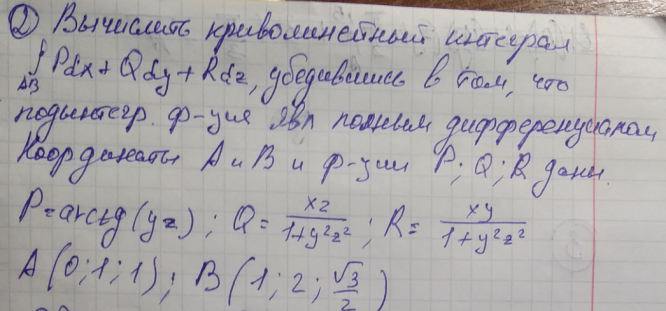 ② Вычислить криволинейный интеграл
∫ Pdx + Qdy + Rdz, убедившись в том, что
AB
подынтегр. ф-ция явл полным дифференциалом
Координаты A и B и ф-ции P; Q; R даны.
P = arctg(yz); Q = xz/(1+y²z²); R = xy/(1+y²z²)
A(0;1;1); B(1;2;√3/2)